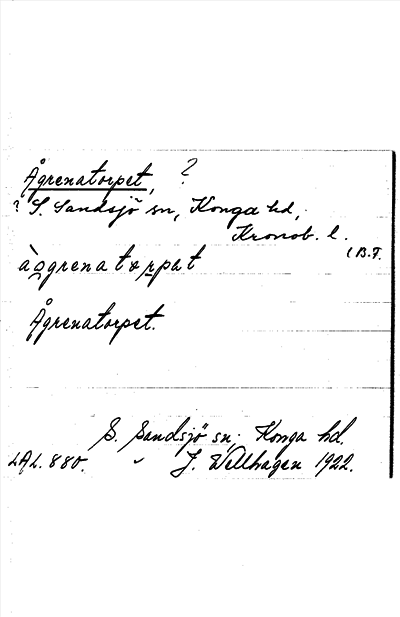 Ågrenatorpet, ?
? S. Sandsjö sn, Konga hd,
Kronob. l.
(B.F.
àggrenatorpat
Ågrenatorpet.
S. Sandsjö sn; Konga hd.
LAL. 880. " J. Wellhagen 1922.